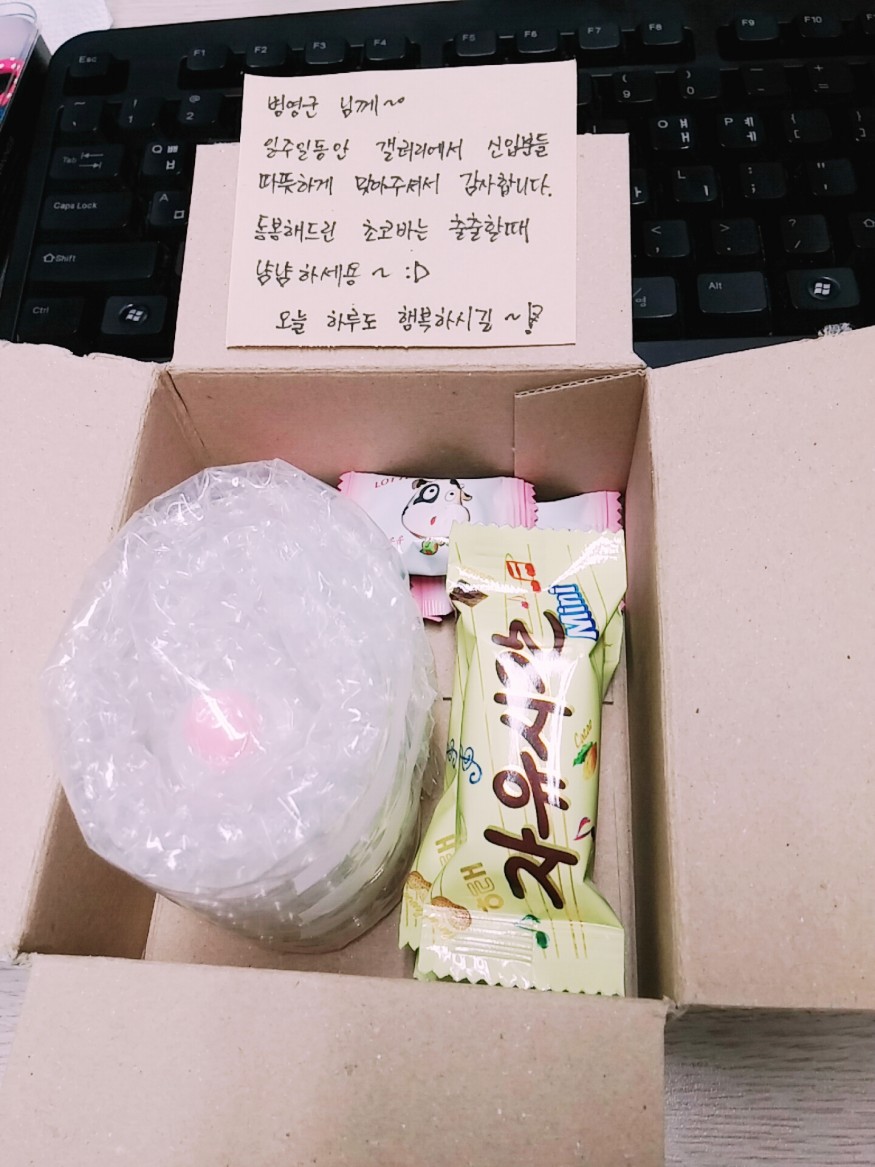 Esc F1 F2 F3 F4 F5 F6 F7 F8 F9 F10
범영군 님께~
일주일동안 갤러리에서 신입분들
따뜻하게 맞아주셔서 감사합니다.
동봉해드린 초코바는 출출할때
냠냠하세용 ~ :D
오늘 하루도 행복하시길 ~!
~ ` ! 1 @ 2 ( 9 ) 0 _ - + =
Tab Q ㅃ ㅂ O ㅒ ㅐ P ㅖ ㅔ { [ } ]
Caps Lock A ㅁ L ㅣ : ; " '
Shift < , > . ? /
Ctrl 한/영 Alt
LOTTE
Mini
자유시간
Cacao
해태